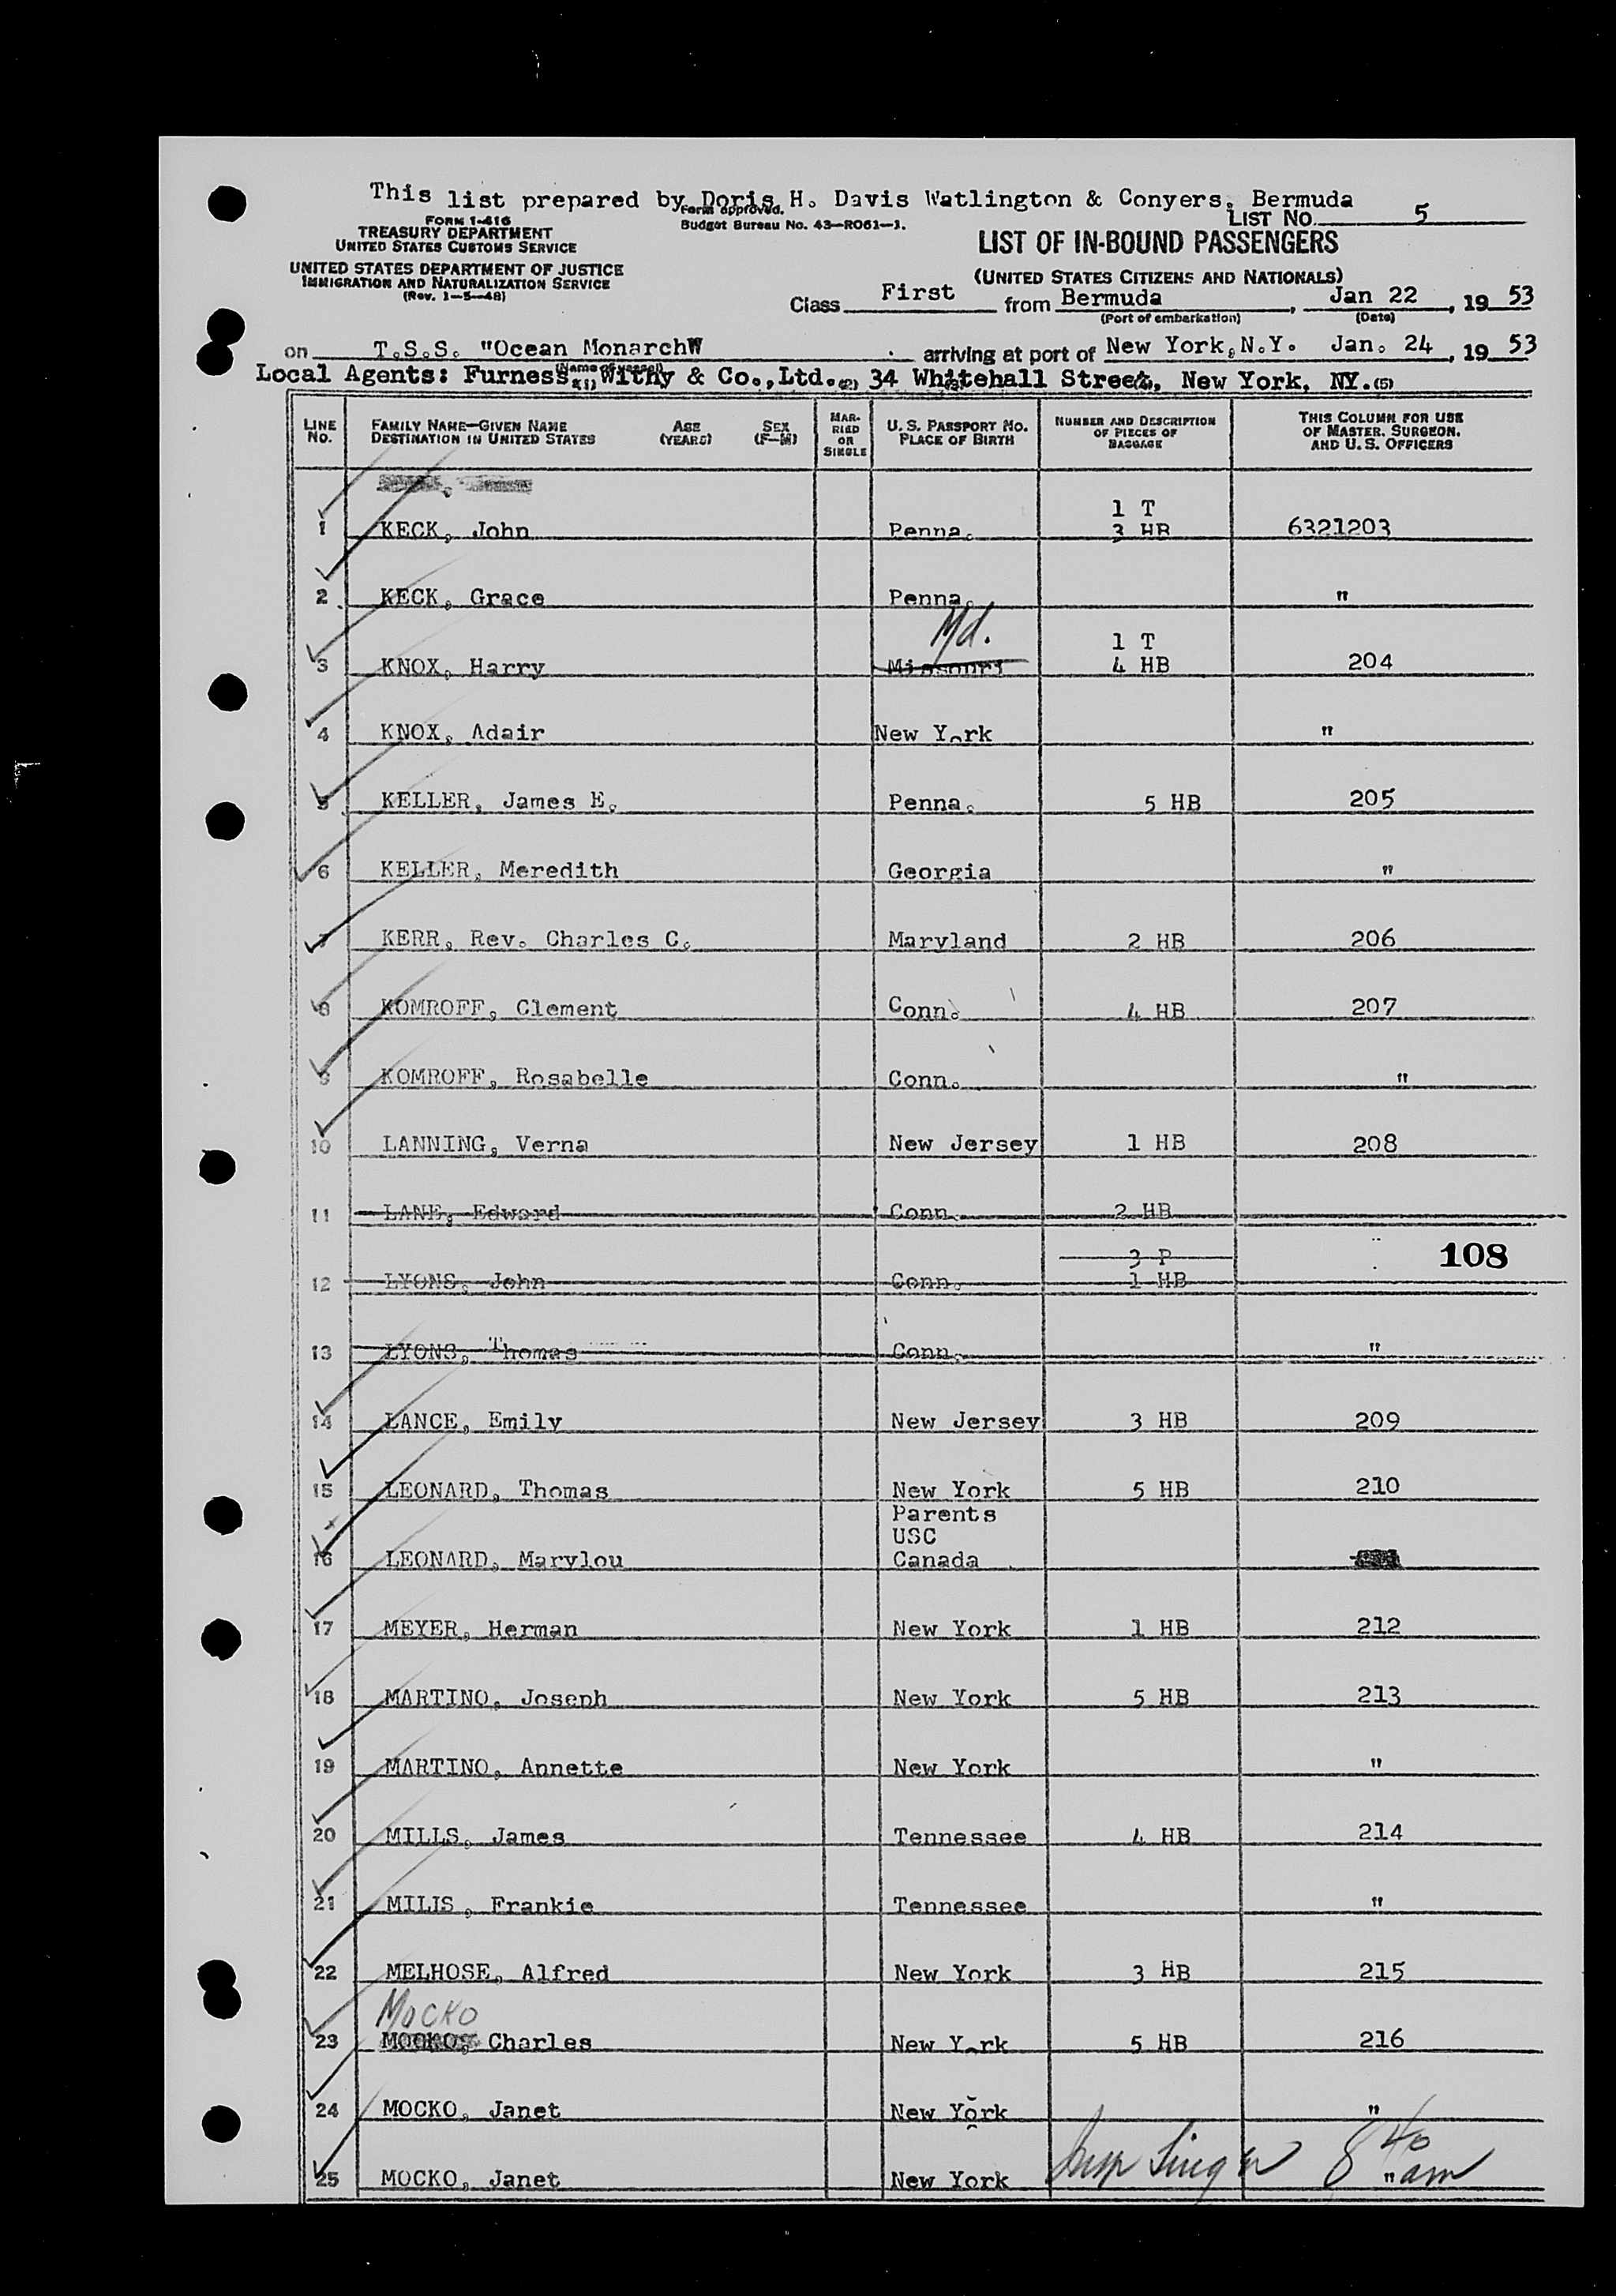 This list prepared by Doris H. Davis Watlington & Conyers, Bermuda
Form approved.
Budget Bureau No. 43—R061—1.
LIST NO. 5
FORM 1-416
TREASURY DEPARTMENT
UNITED STATES CUSTOMS SERVICE
UNITED STATES DEPARTMENT OF JUSTICE
IMMIGRATION AND NATURALIZATION SERVICE
(Rev. 1—5—48)
LIST OF IN-BOUND PASSENGERS
(UNITED STATES CITIZENS AND NATIONALS)
Class First from Bermuda, Jan 22, 19 53
(Port of embarkation) (Date)
on T.S.S. "Ocean MonarchW arriving at port of New York, N.Y. Jan. 24, 19 53
(Name of vessel)
Local Agents: Furness, Withy & Co., Ltd., 34 Whitehall Street, New York, NY.
(1) (2) (3) (4) (5)
LINE NO. FAMILY NAME—GIVEN NAME DESTINATION IN UNITED STATES AGE (YEARS) SEX (F—M) MARRIED OR SINGLE U. S. PASSPORT NO. PLACE OF BIRTH NUMBER AND DESCRIPTION OF PIECES OF BAGGAGE THIS COLUMN FOR USE OF MASTER, SURGEON, AND U. S. OFFICERS
1 T
1 KECK, John Penna. 3 HB 6321203
2 KECK, Grace Penna. "
Md. 1 T
3 KNOX, Harry Missouri 4 HB 204
4 KNOX, Adair New York "
5 KELLER, James E. Penna. 5 HB 205
6 KELLER, Meredith Georgia "
7 KERR, Rev. Charles C. Maryland 2 HB 206
8 KOMROFF, Clement Conn. 4 HB 207
9 KOMROFF, Rosabelle Conn. "
10 LANNING, Verna New Jersey 1 HB 208
11 LANE, Edward Conn. 2 HB
3 P 108
12 LYONS, John Conn. 1 HB
13 LYONS, Thomas Conn. "
14 LANCE, Emily New Jersey 3 HB 209
15 LEONARD, Thomas New York 5 HB 210
Parents
USC
16 LEONARD, Marylou Canada
17 MEYER, Herman New York 1 HB 212
18 MARTINO, Joseph New York 5 HB 213
19 MARTINO, Annette New York "
20 MILLS, James Tennessee 4 HB 214
21 MILLS, Frankie Tennessee "
22 MELHOSE, Alfred New York 3 HB 215
MOCKO
23 MOCKO, Charles New York 5 HB 216
24 MOCKO, Janet New York "
Insp Singer 8 40 am
25 MOCKO, Janet New York "